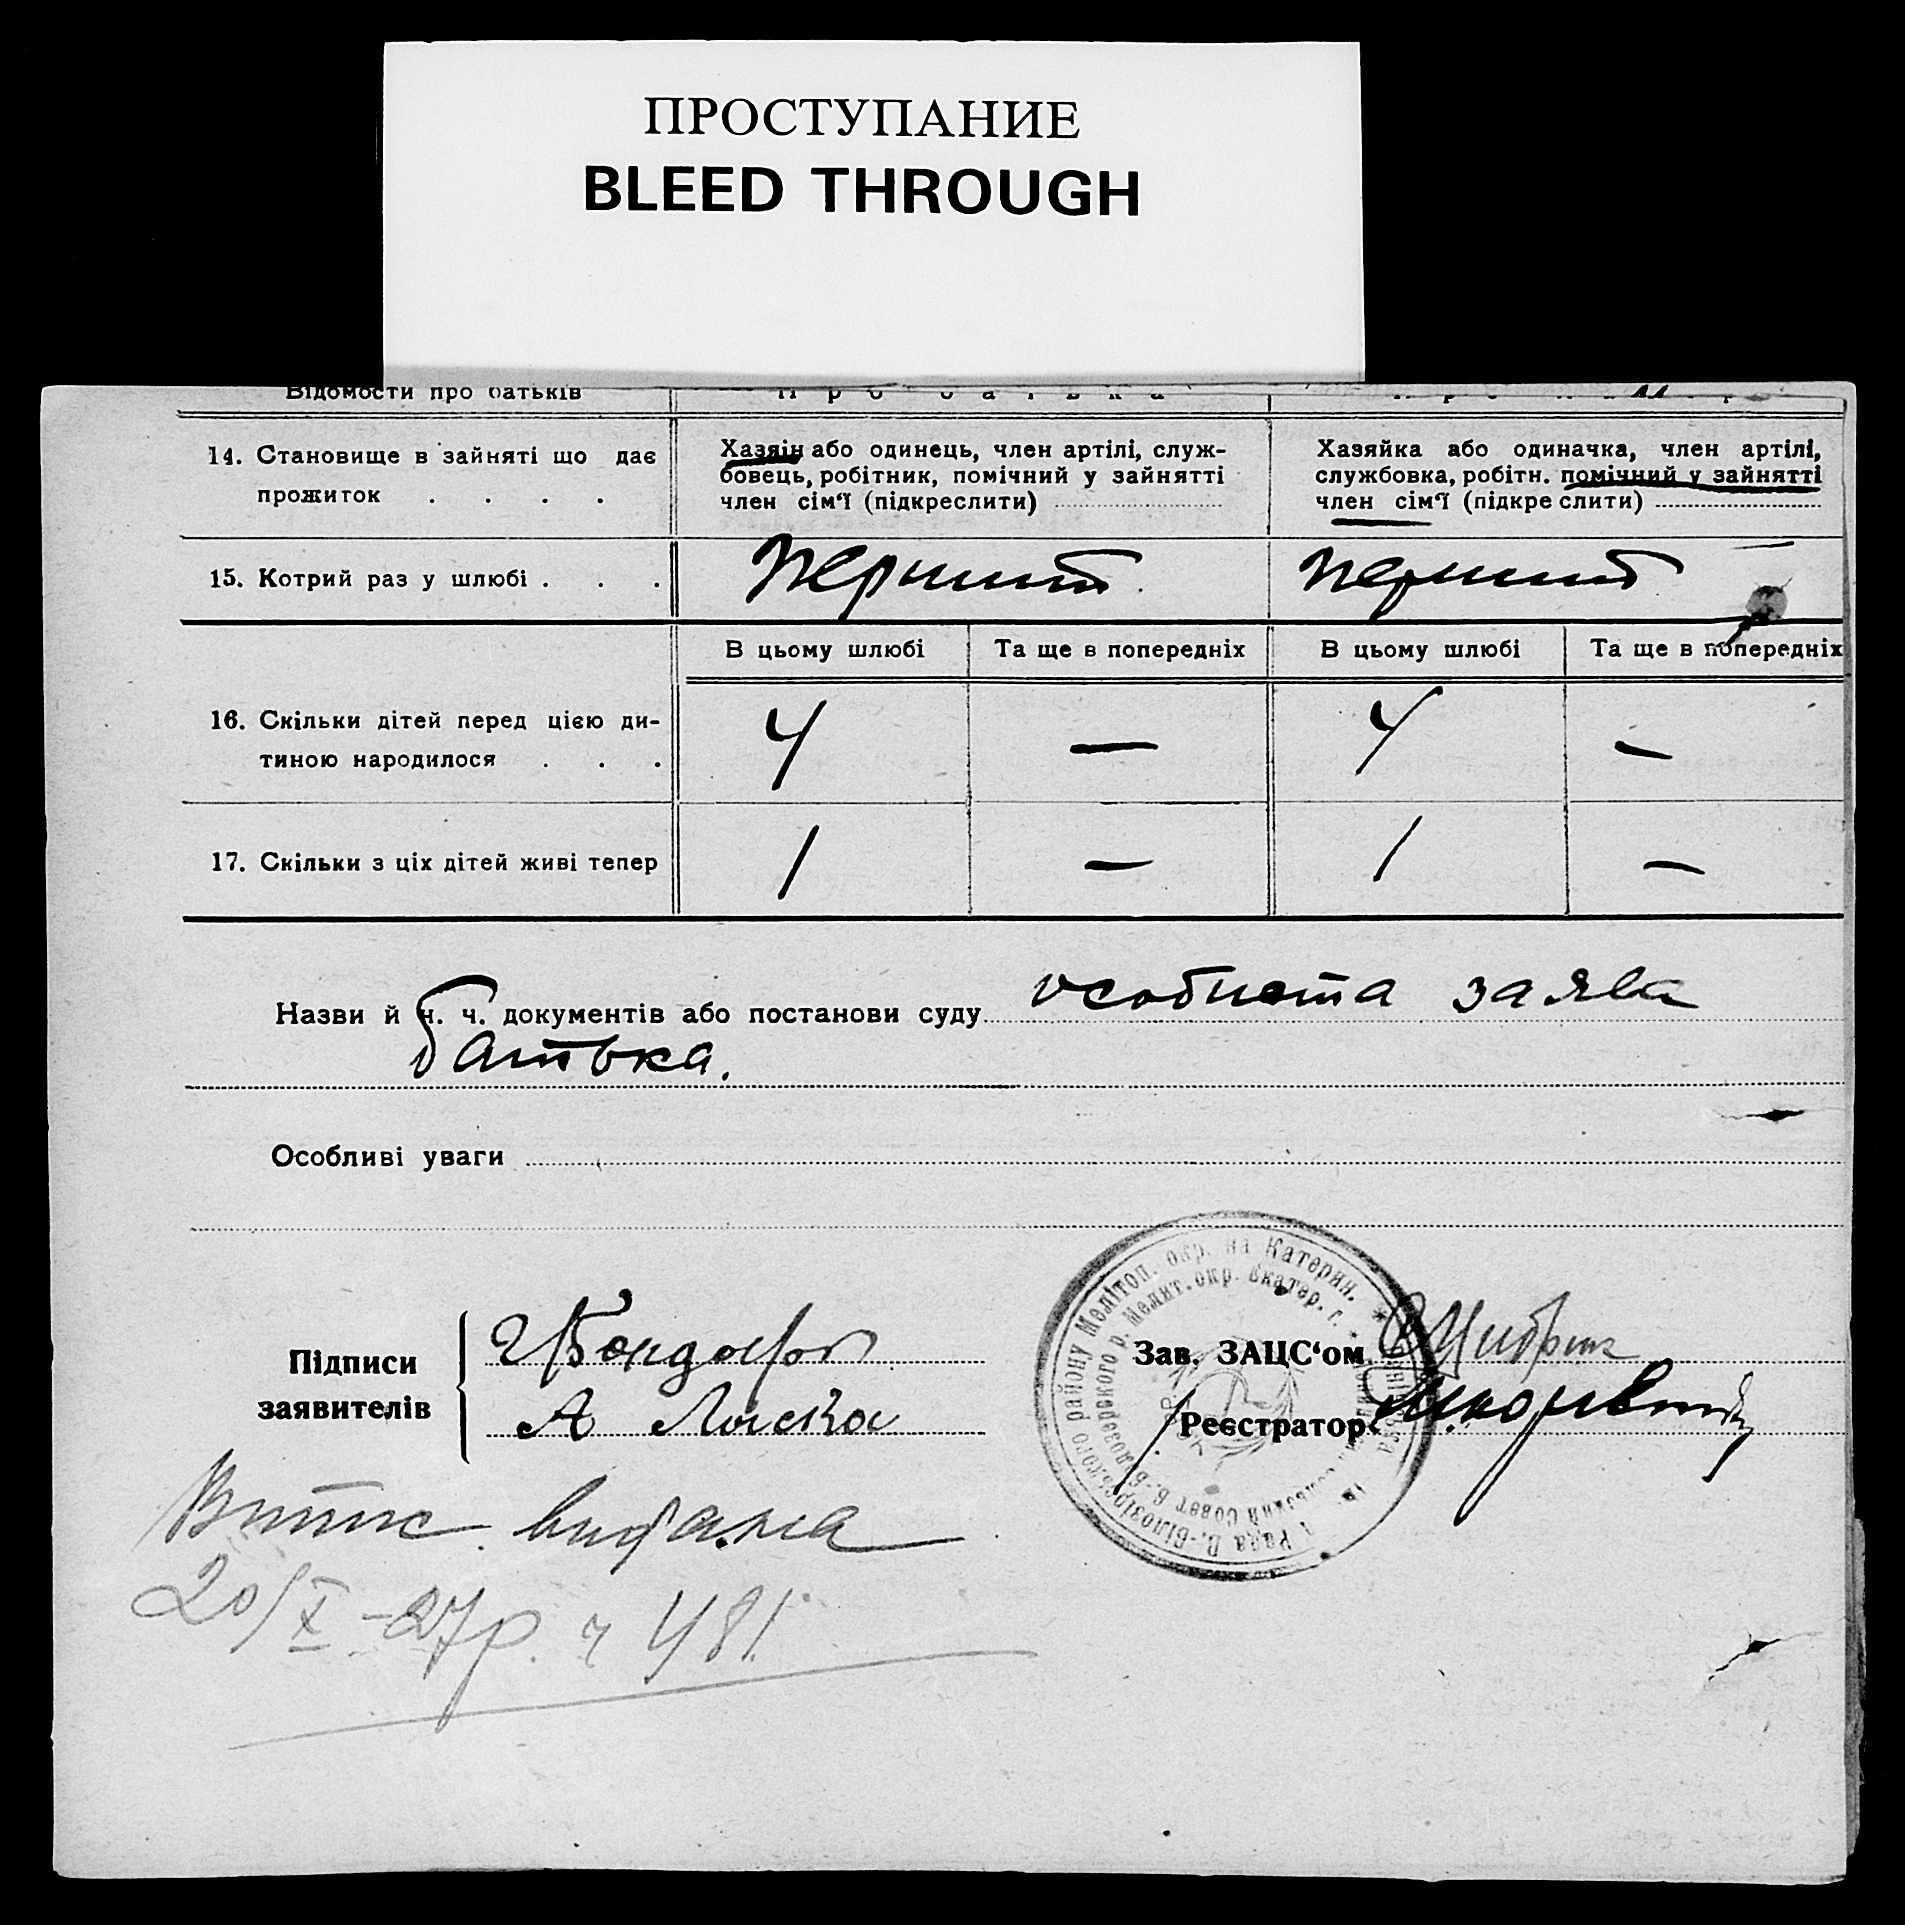 ПРОСТУПАНИЕ
BLEED THROUGH
Відомости про батьків
14. Становище в зайняті що дає
прожиток . . . .
Хазяін або одинець, член артілі, служ-
бовець, робітник, помічний у зайнятті
член сім'ї (підкреслити)
Хазяйка або одиначка, член артілі,
службовка, робітн. помічний у зайнятті
член сім'ї (підкреслити)
15. Котрий раз у шлюбі . . .
перший
перший
В цьому шлюбі Та ще в попередніх В цьому шлюбі Та ще в попередніх
16. Скільки дітей перед цією ди-
тиною народилося . . .
4 — 4 —
17. Скільки з ціх дітей живі тепер 1 — 1 —
Назви й н. ч. документів або постанови суду особиста заява
батька.
Особливі уваги
Підписи
заявителів
А Лиска
Зав. ЗАЦС'ом
Реєстратор
району Мелітоп. окр. на Катерин.
р. Мелит. окр. Екатер. г.
Витяг видана
20/X-27р. ч 481